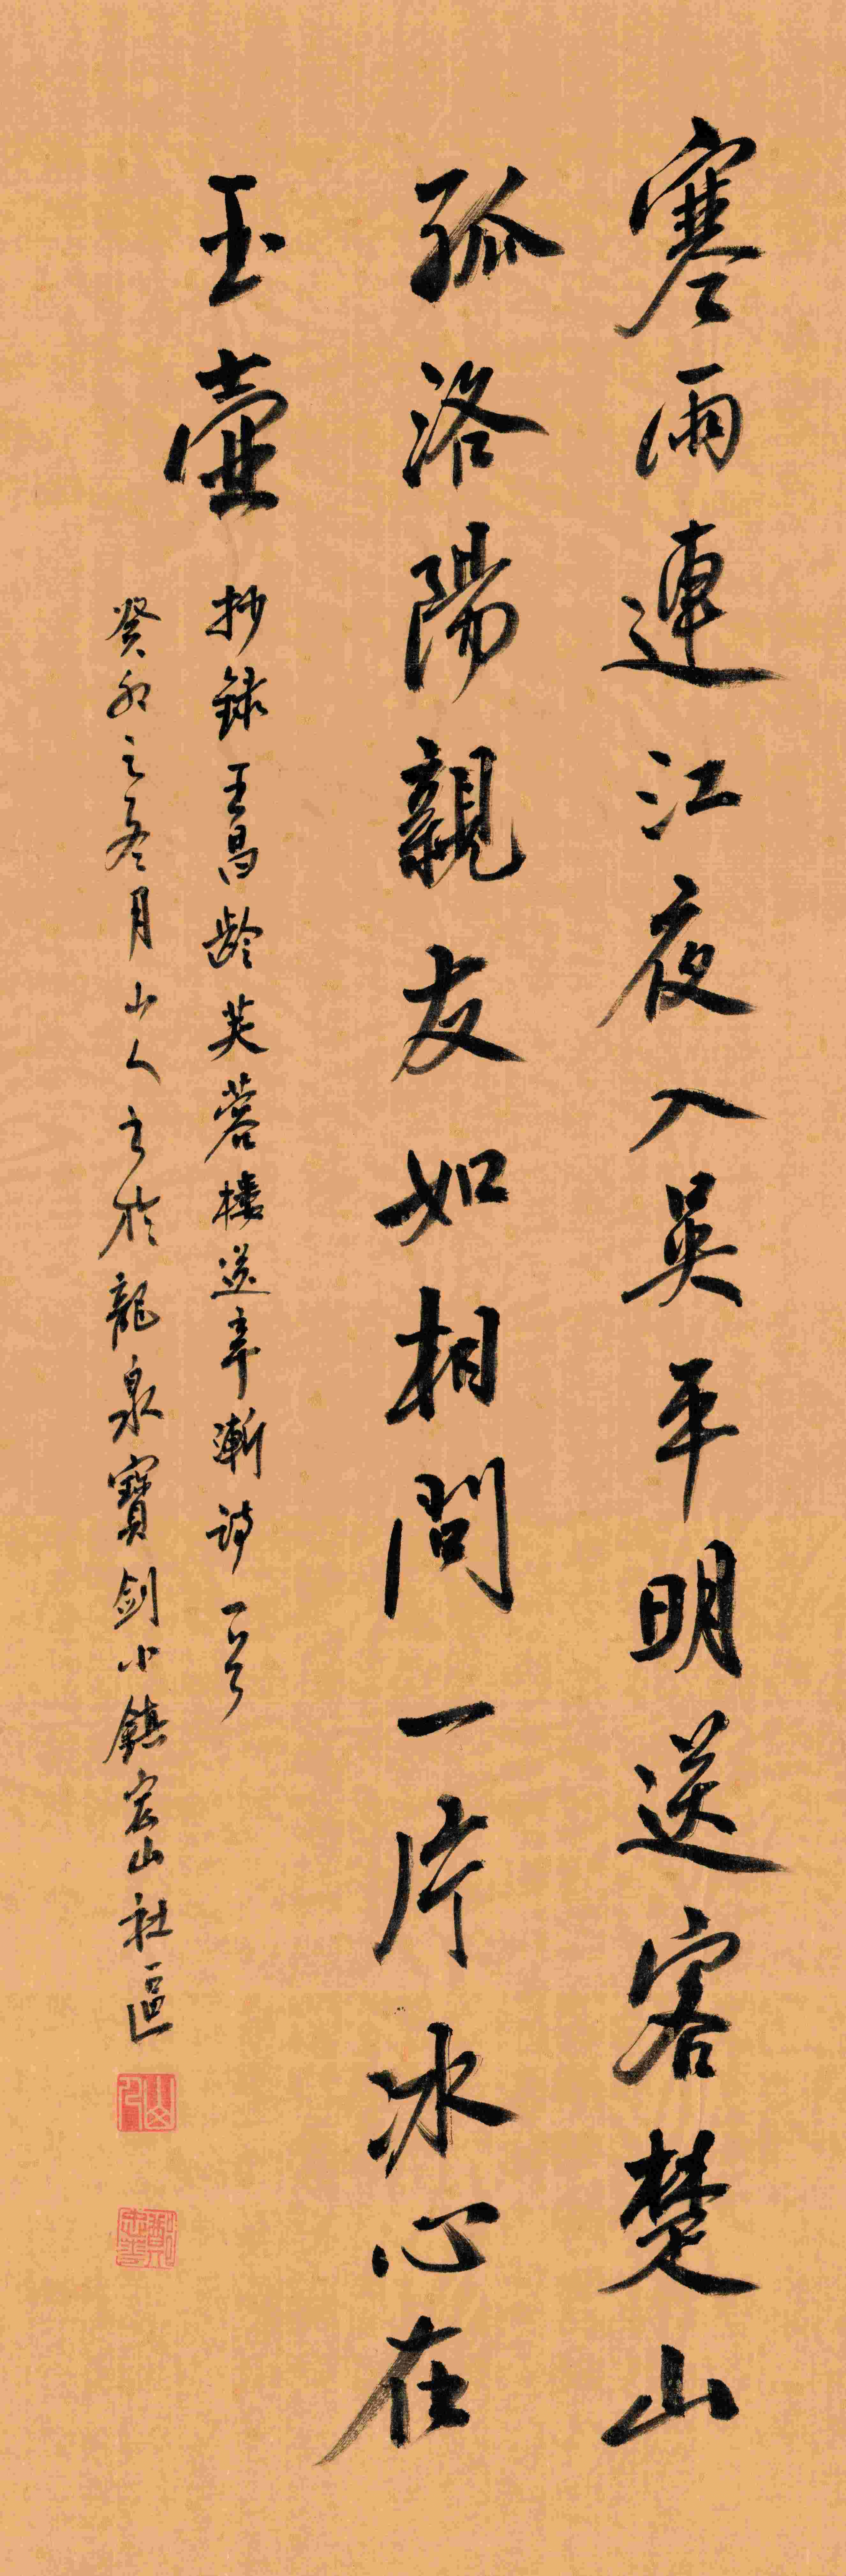 寒雨連江夜入吳平明送客楚山
孤洛陽親友如相問一片冰心在
玉壺
抄錄王昌齡芙蓉樓送辛漸詩一首
癸卯之冬月山人書於龍泉寶劍小鎮宏山社區